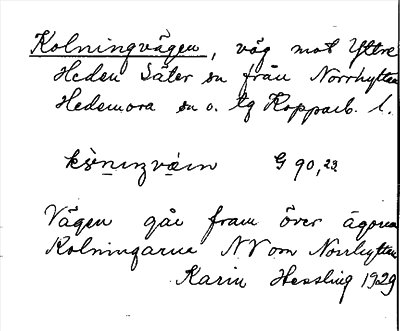 Kolningvägen, väg mot Yttre
Heden Säter sn från Norrhyttan
Hedemora sn o. tg Kopparb. l.
G 90,23
Vägen går fram över ägorna
Kolningarne NV om Norrhyttan
Karin Hessling 1929